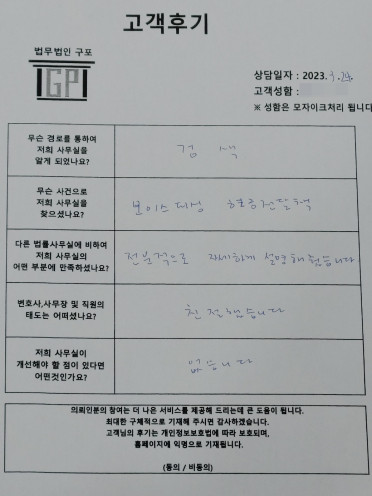 고객후기
법무법인 구포
GP
상담일자 : 2023.
고객성함 :
※ 성함은 모자이크처리 됩니다
무슨 경로를 통하여
저희 사무실을
알게 되었나요?
검색
무슨 사건으로
저희 사무실을
찾으셨나요?
보이스피싱 현금전달책
다른 법률사무실에 비하여
저희 사무실의
어떤 부분에 만족하셨나요?
전문적으로 자세하게 설명해줬습니다
변호사,사무장 및 직원의
태도는 어떠셨나요?
친절했습니다
저희 사무실이
개선해야 할 점이 있다면
어떤것인가요?
없습니다
의뢰인분의 참여는 더 나은 서비스를 제공해 드리는데 큰 도움이 됩니다.
최대한 구체적으로 기재해 주시면 감사하겠습니다.
고객님의 후기는 개인정보보호법에 따라 보호되며,
홈페이지에 익명으로 기재됩니다.
(동의 / 비동의)